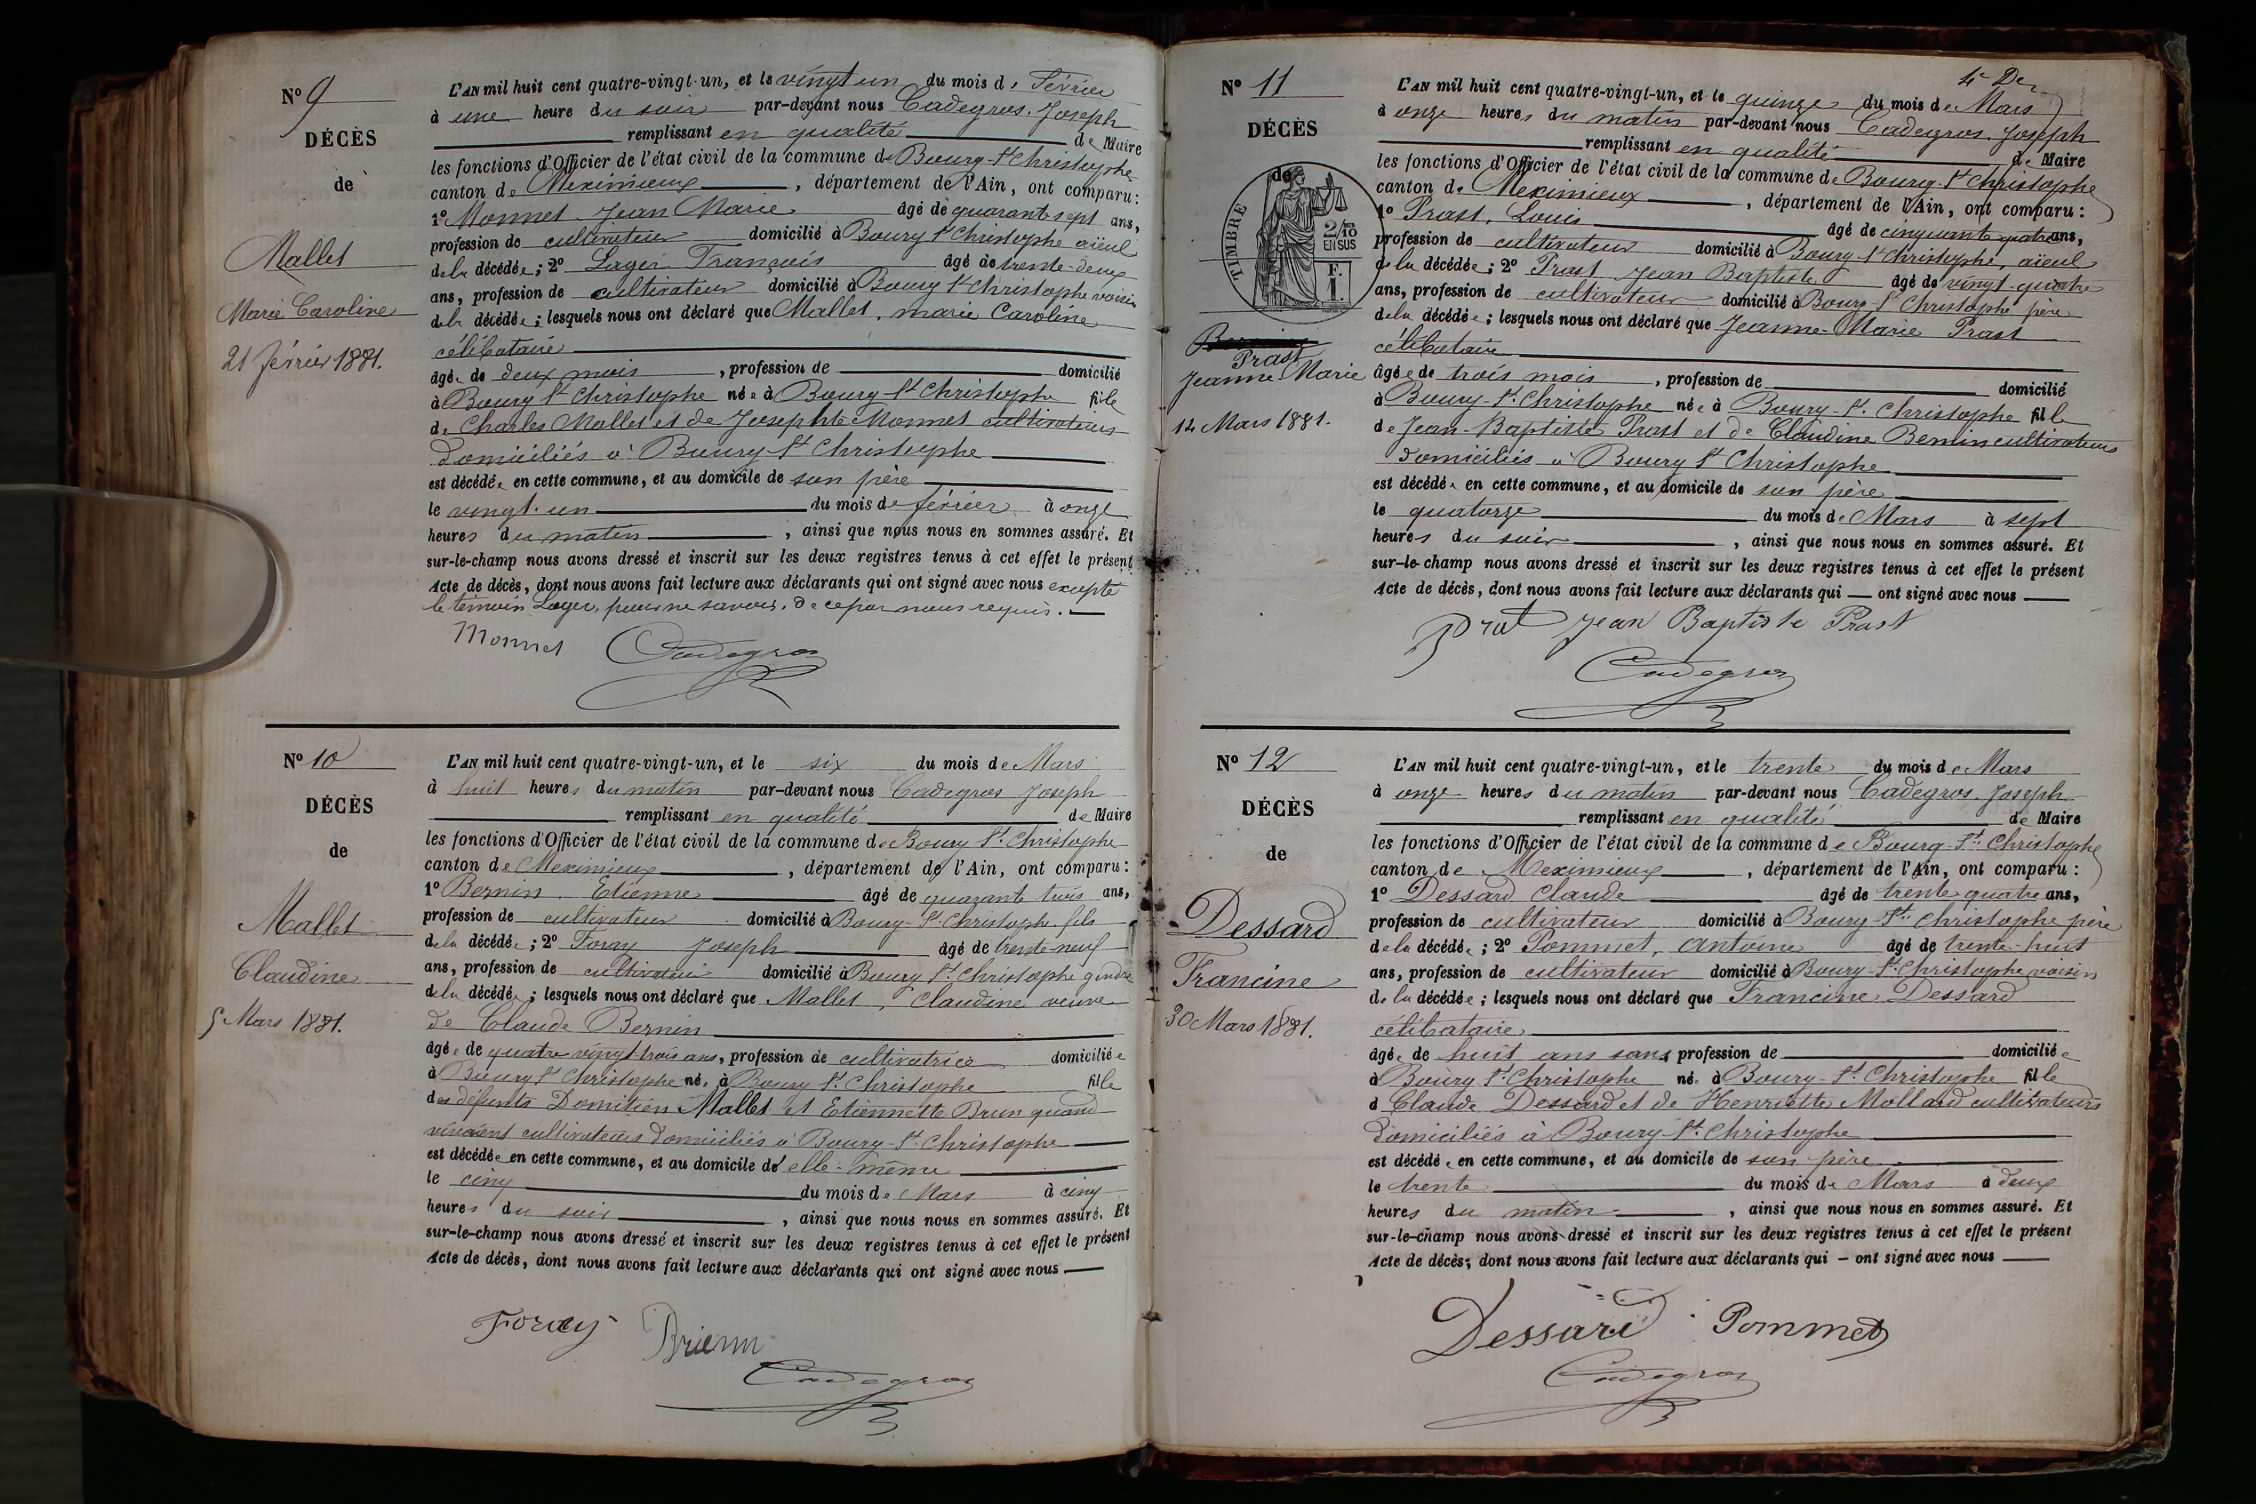 N° 9
DÉCÈS
de
Mallet
Marie Caroline
21 février 1881.
L'AN mil huit cent quatre-vingt-un, et le vingt un du mois de Février
à une heure du soir par-devant nous Cadegros, Joseph
remplissant en qualité de Maire
les fonctions d'Officier de l'état civil de la commune de Bourg-St Christophe
canton de Meximieux, département de l'Ain, ont comparu:
1° Monnet Jean Marie âgé de quarante sept ans,
profession de cultivateur domicilié à Bourg St Christophe aïeul
de la décédée; 2° Lager François âgé de trente-deux
ans, profession de cultivateur domicilié à Bourg St Christophe voisin
de la décédée; lesquels nous ont déclaré que Mallet, marie Caroline
célibataire
âgée de deux mois, profession de domicilié
à Bourg St Christophe née à Bourg-St Christophe fille
de Charles Mallet et de Josephte Monnet cultivateurs
domiciliés à Bourg St Christophe
est décédée en cette commune, et au domicile de son père
le vingt-un du mois de février à onze
heures du matin, ainsi que nous nous en sommes assuré. Et
sur-le-champ nous avons dressé et inscrit sur les deux registres tenus à cet effet le présent
Acte de décès, dont nous avons fait lecture aux déclarants qui ont signé avec nous excepté
le témoin Lager, pour ne savoir, de ce par nous requis.
Monnet Cadegros
N° 10
DÉCÈS
de
Mallet
Claudine
5 Mars 1881.
L'AN mil huit cent quatre-vingt-un, et le six du mois de Mars
à huit heures du matin par-devant nous Cadegros Joseph
remplissant en qualité de Maire
les fonctions d'Officier de l'état civil de la commune de Bourg St Christophe
canton de Meximieux, département de l'Ain, ont comparu:
1° Bernin, Etienne âgé de quarante trois ans,
profession de cultivateur domicilié à Bourg-St Christophe fils
de la décédée; 2° Foray Joseph âgé de trente-neuf
ans, profession de cultivateur domicilié à Bourg St Christophe gendre
de la décédée; lesquels nous ont déclaré que Mallet, Claudine veuve
de Claude Bernin
âgée de quatre vingt-trois ans, profession de cultivatrice domiciliée
à Bourg St Christophe née à Bourg St Christophe fille
des défunts Domitien Mallet et Etiennette Brun quand
vivaient cultivateurs domiciliés à Bourg-St Christophe
est décédée en cette commune, et au domicile d'elle-même
le cinq du mois de Mars à cinq
heures du soir, ainsi que nous nous en sommes assuré. Et
sur-le-champ nous avons dressé et inscrit sur les deux registres tenus à cet effet le présent
Acte de décès, dont nous avons fait lecture aux déclarants qui ont signé avec nous
Foray
Cadegros
4e De
N° 11
DÉCÈS
de
TIMBRE
2/10
EN SUS
F.
1.
Prast
Jeanne Marie
14 Mars 1881.
L'AN mil huit cent quatre-vingt-un, et le quinze du mois de Mars
à onze heures du matin par-devant nous Cadegros, Joseph
remplissant en qualité de Maire
les fonctions d'Officier de l'état civil de la commune de Bourg-St Christophe
canton de Meximieux, département de l'Ain, ont comparu:
1° Prast, Louis âgé de cinquante quatre ans,
profession de cultivateur domicilié à Bourg-St Christophe, aïeul
de la décédée; 2° Prast Jean Baptiste âgé de vingt-quatre
ans, profession de cultivateur domicilié à Bourg-St Christophe père
de la décédée; lesquels nous ont déclaré que Jeanne-Marie Prast
célibataire
âgée de trois mois, profession de domicilié
à Bourg-St Christophe née à Bourg-St Christophe fille
de Jean-Baptiste Prast et de Claudine Bernin cultivateurs
domiciliés à Bourg St Christophe
est décédée en cette commune, et au domicile de son père
le quatorze du mois de Mars à sept
heures du soir, ainsi que nous nous en sommes assuré. Et
sur-le-champ nous avons dressé et inscrit sur les deux registres tenus à cet effet le présent
Acte de décès, dont nous avons fait lecture aux déclarants qui — ont signé avec nous
Prat Jean Baptiste Prast
Cadegros
N° 12
DÉCÈS
de
Dessard
Francine
30 Mars 1881.
L'AN mil huit cent quatre-vingt-un, et le trente du mois de Mars
à onze heures du matin par-devant nous Cadegros, Joseph
remplissant en qualité de Maire
les fonctions d'Officier de l'état civil de la commune de Bourg-St Christophe
canton de Meximieux, département de l'Ain, ont comparu:
1° Dessard Claude âgé de trente quatre ans,
profession de cultivateur domicilié à Bourg-St Christophe père
de la décédée; 2° Pommet, Antoine âgé de trente-huit
ans, profession de cultivateur domicilié à Bourg-St Christophe voisin
de la décédée; lesquels nous ont déclaré que Francine Dessard
célibataire
âgée de huit ans sans profession de domiciliée
à Bourg St Christophe née à Bourg-St Christophe fille
d Claude Dessard et de Henriette Mollard cultivateurs
domiciliés à Bourg-St Christophe
est décédée en cette commune, et au domicile de son père
le trente du mois de Mars à deux
heures du matin, ainsi que nous nous en sommes assuré. Et
sur-le-champ nous avons dressé et inscrit sur les deux registres tenus à cet effet le présent
Acte de décès, dont nous avons fait lecture aux déclarants qui — ont signé avec nous
Dessard Pommet
Cadegros